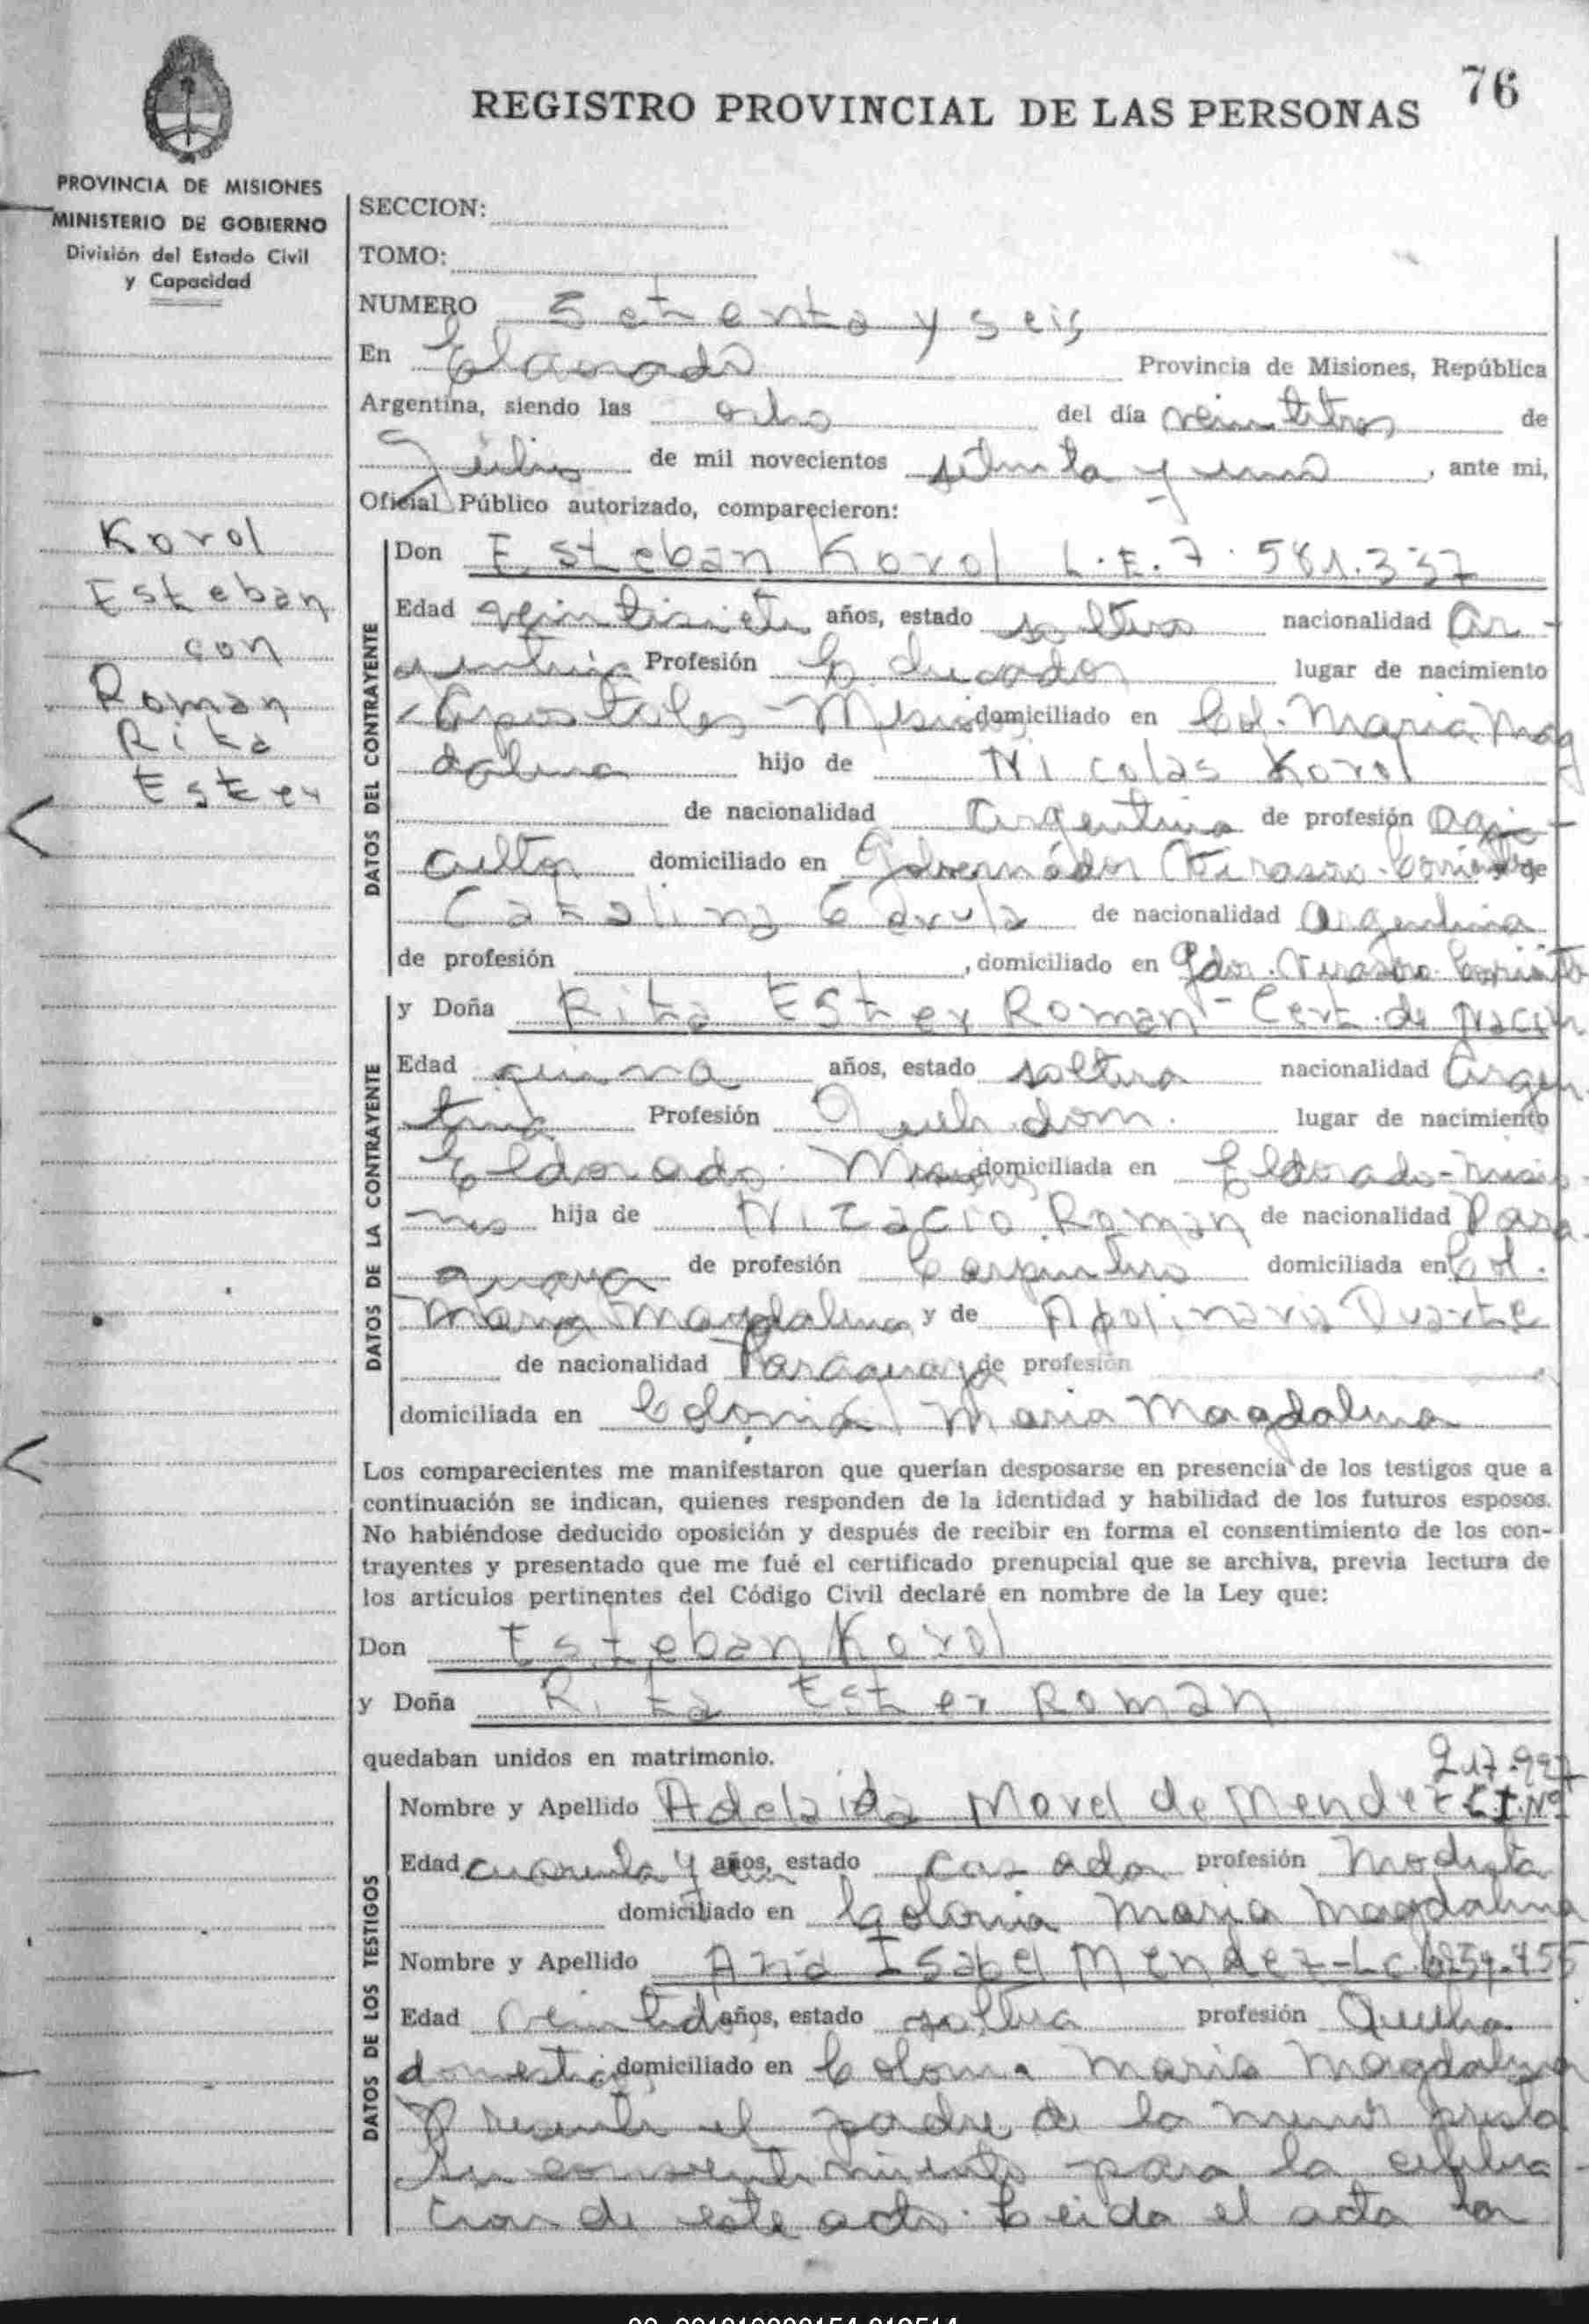 76
REGISTRO PROVINCIAL DE LAS PERSONAS
PROVINCIA DE MISIONES
MINISTERIO DE GOBIERNO
División del Estado Civil
y Capacidad
Korol
Esteban
con
Roman
Rita
Ester
SECCION:
TOMO:
NUMERO Setenta y seis
En Eldorado Provincia de Misiones, República
Argentina, siendo las ocho del día veintitres de
Julio de mil novecientos setenta y uno, ante mi,
Oficial Público autorizado, comparecieron:
DATOS DEL CONTRAYENTE
Don Esteban Korol L.E. 7.581.337
Edad veintisiete años, estado soltero nacionalidad Ar-
gentina Profesión lugar de nacimiento
Apostoles - Misiones domiciliado en Col. Maria Mag
dalena hijo de Nicolas Korol
de nacionalidad Argentina de profesión Agri-
cultor domiciliado en Gobernador Virasoro-Corrientes y de
Catalina de nacionalidad Argentina
de profesión , domiciliado en Gdor. Virasoro Corrientes
DATOS DE LA CONTRAYENTE
y Doña Rita Ester Roman - Cert. de Nacim
Edad años, estado soltera nacionalidad Argen-
tina Profesión Queh. dom. lugar de nacimiento
Eldorado Misiones domiciliada en Eldorado-Misio-
nes hija de Nicacio Roman de nacionalidad Para-
guaya de profesión Carpintero domiciliada en Col.
Maria Magdalena y de Apolinaria Duarte
de nacionalidad Paraguaya de profesión
domiciliada en Colonia Maria Magdalena
Los comparecientes me manifestaron que querían desposarse en presencia de los testigos que a
continuación se indican, quienes responden de la identidad y habilidad de los futuros esposos.
No habiéndose deducido oposición y después de recibir en forma el consentimiento de los con-
trayentes y presentado que me fué el certificado prenupcial que se archiva, previa lectura de
los artículos pertinentes del Código Civil declaré en nombre de la Ley que:
Don Esteban Korol
y Doña Rita Ester Roman
quedaban unidos en matrimonio.
DATOS DE LOS TESTIGOS
217.997
Nombre y Apellido Adelaida Morel de Mendez C.I.Nº
Edad cuarenta y años, estado casada profesión Modista
domiciliado en Colonia Maria Magdalena
Nombre y Apellido Ana Isabel Mendez-LC.6254.455
Edad veintidos años, estado soltera profesión Queha.
domesticos domiciliado en Colonia Maria Magdalena
Presente el padre de la menor presta
su consentimiento para la celebra-
cion de este acto. Leida el acta la